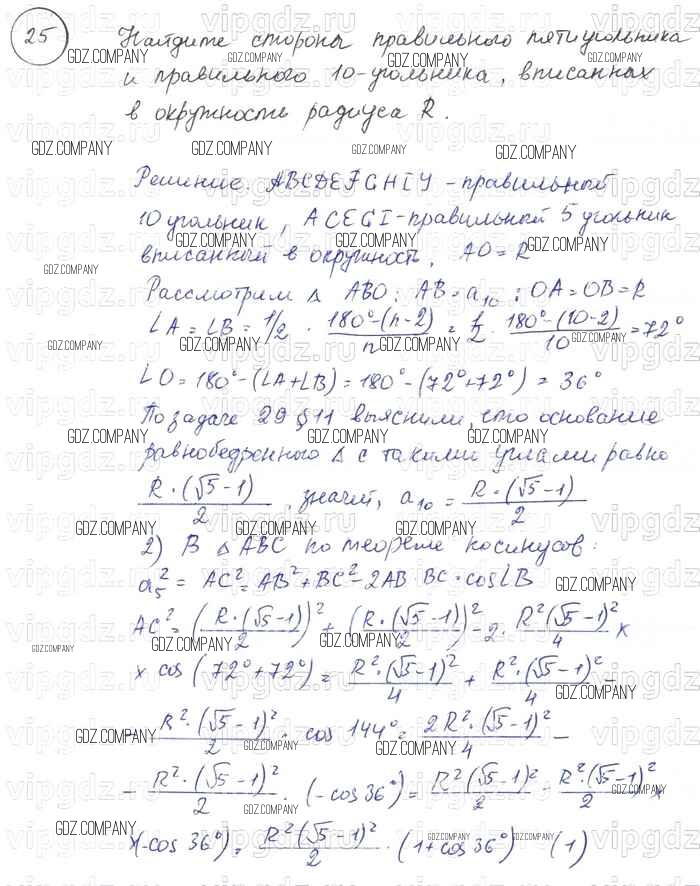 25 Найдите стороны правильного пятиугольника
и правильного 10-угольника, вписанных
в окружность радиуса R.
Решение. ABCDEFGHIY - правильный
10 угольник, ACEGI - правильный 5 угольник
вписанный в окружность, AO = R
Рассмотрим Δ ABO: AB = a₁₀ ; OA = OB = R
∠A = ∠B = 1/2 · (180° - (n-2))/n = 1/2 · (180° - (10-2))/10 = 72°
∠O = 180° - (∠A + ∠B) = 180° - (72° + 72°) = 36°
По задаче 29 § 11 выяснили, что основание
равнобедренного Δ с такими углами равно
R·(√5-1)/2, значит, a₁₀ = R·(√5-1)/2
2) В Δ ABC по теореме косинусов:
a₅² = AC² = AB² + BC² - 2AB · BC · cos∠B
AC² = (R·(√5-1)/2)² + (R·(√5-1)/2)² - 2 · R²(√5-1)²/4 ×
× cos (72° + 72°) = R²·(√5-1)²/4 + R²·(√5-1)²/4 -
- R²·(√5-1)²/2 · cos 144° = 2R²·(√5-1)²/4 -
- R²·(√5-1)²/2 · (-cos 36°) = R²(√5-1)²/2 - R²·(√5-1)²/2 ×
×(-cos 36°) = R²(√5-1)²/2 · (1 + cos 36°) (1)